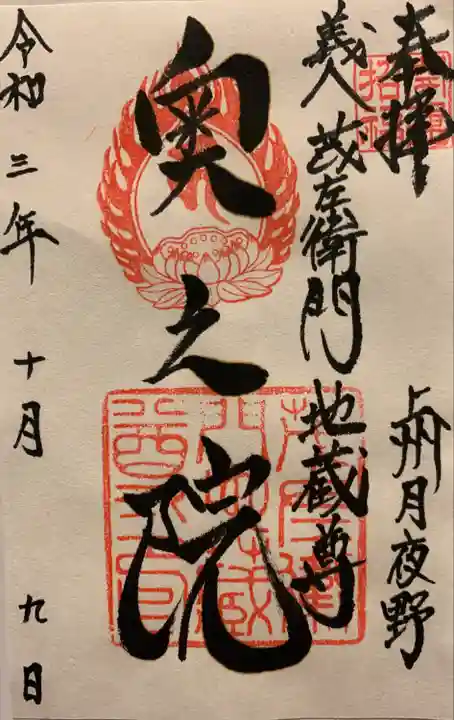 奉拝
上州月夜野
義人茂左衛門地蔵尊
奥之院
令和三年十月九日